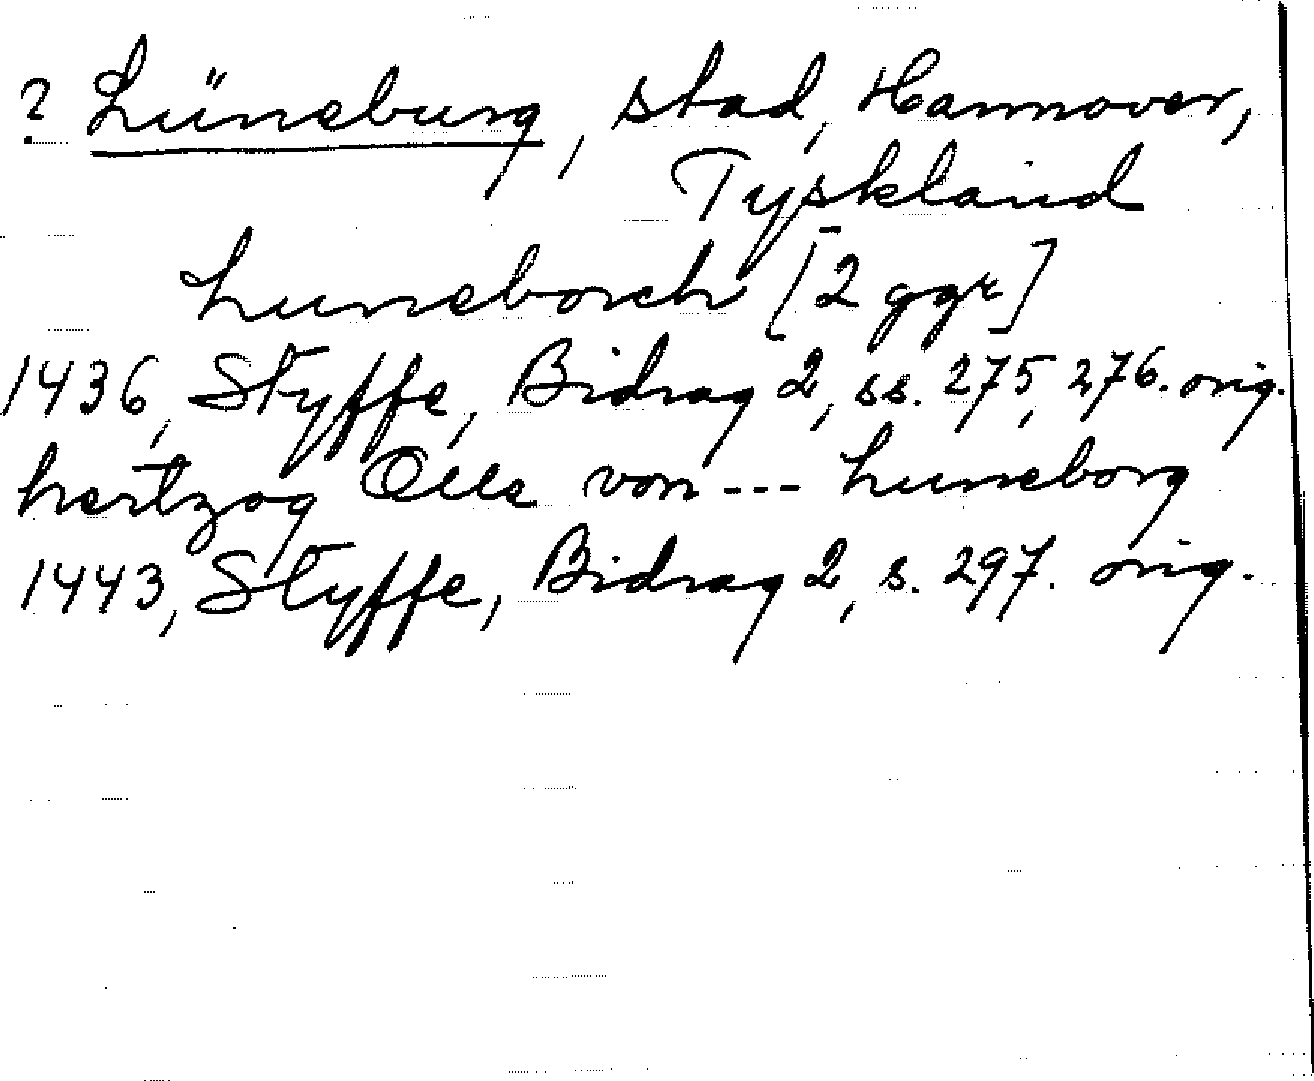 ? Lüneburg, stad, Hannover,
Tyskland
Luneborch [2 ggr]
1436, Styffe, Bidrag 2, ss. 275, 276. orig.
hertzog Olle von --- Luneborg
1443, Styffe, Bidrag 2, s. 297. orig.